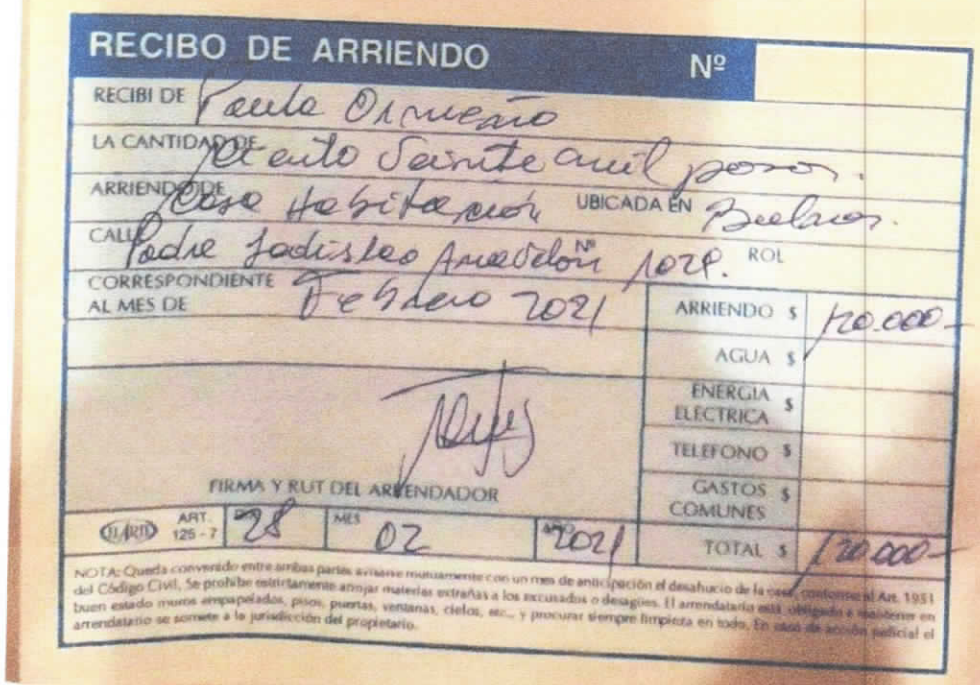 RECIBO DE ARRIENDO Nº
RECIBI DE Paula Ormeño
LA CANTIDAD DE Ciento Veinte mil pesos.
ARRIENDO DE Casa Habitación UBICADA EN Bulnes.
CALLE Padre Ladislao Nº 1028. ROL
CORRESPONDIENTE
AL MES DE Febrero 2021
ARRIENDO $ 120.000-
AGUA $
ENERGIA
ELECTRICA $
TELEFONO $
GASTOS
COMUNES $
TOTAL $ 120.000-
FIRMA Y RUT DEL ARRENDADOR
ART.
125 - 7
28 MES 02 AÑO 2021
NOTA: Queda convenido entre ambas partes avisarse mutuamente con un mes de anticipación el desahucio de la casa, conforme al Art. 1951
del Código Civil. Se prohíbe estrictamente arrojar materias extrañas a los excusados o desagües. El arrendatario está obligado a mantener en
buen estado muros empapelados, pisos, puertas, ventanas, cielos, etc., y procurar siempre limpieza en todo. En caso de acción judicial el
arrendatario se somete a la jurisdicción del propietario.